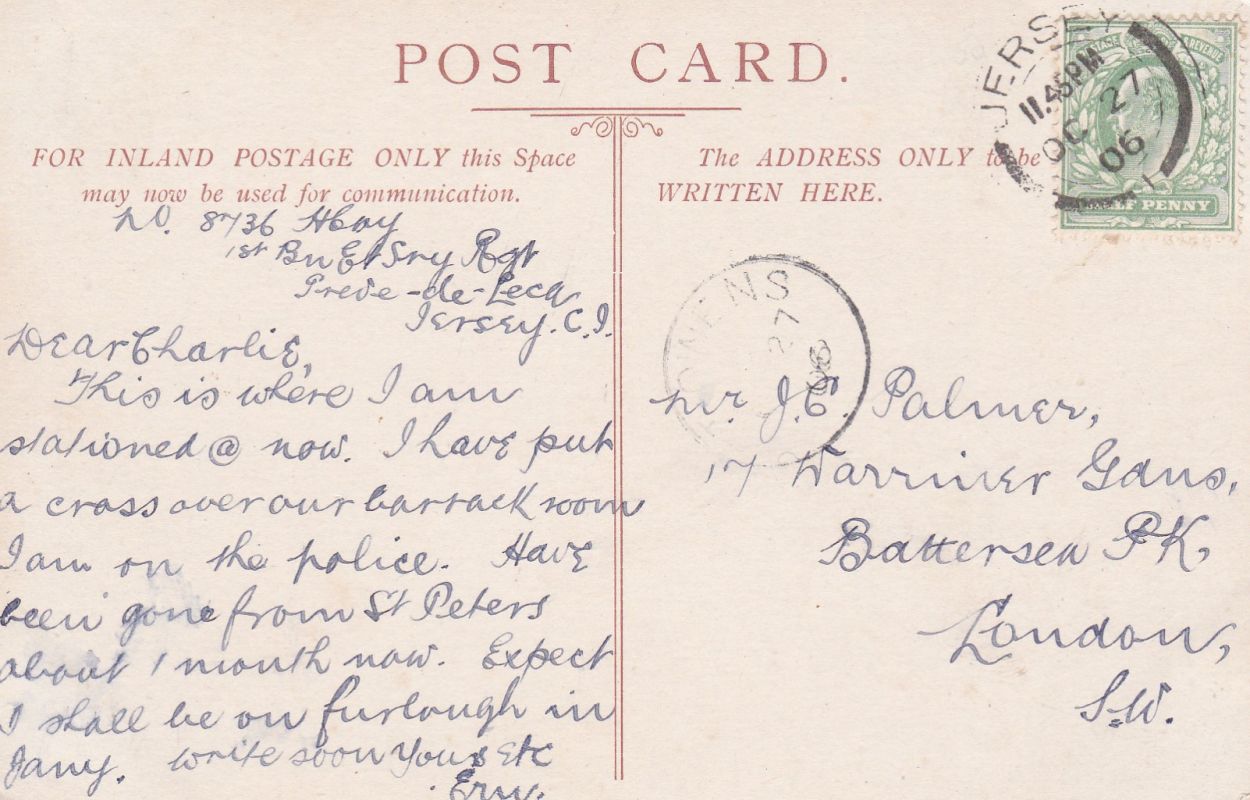 POST CARD.
FOR INLAND POSTAGE ONLY this Space
may now be used for communication.
The ADDRESS ONLY to be
WRITTEN HERE.
JERSEY
11.45PM
OC 27
06
HALF PENNY
No. 8736
1st Bn Et Sry Rgt
Greve-de-Lecq
Jersey. C.I.
Dear Charlie,
This is where I am
stationed @ now. I have put
a cross over our barrack room
I am on the police. Have
been gone from St Peters
about 1 month now. Expect
I shall be on furlough in
Jany. Write soon Yours Etc
Ern.
27
06
Mr. J.C. Palmer,
17 Warriner Gdns,
Battersea PK,
London,
S.W.